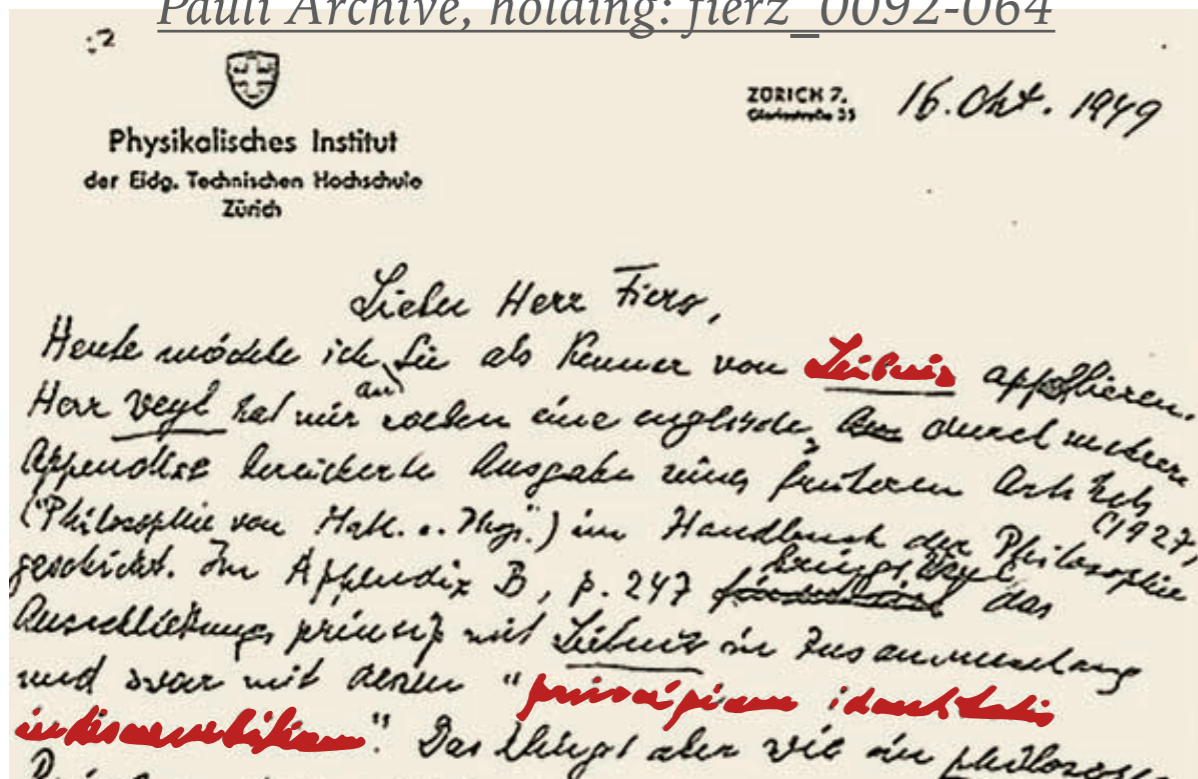 Pauli Archive, holding: fierz_0092-064
:2
Physikalisches Institut
der Eidg. Technischen Hochschule
Zürich
ZÜRICH 7,
Gloriastraße 35
16. Okt. 1949
Lieber Herr Fierz,
Heute möchte ich Sie als Kenner von Leibniz appellieren.
an
Herr Weyl hat mir soeben eine englische, durch mehrere
Appendixe bereicherte Ausgabe seines früheren Artikels
("Philosophie von Math. u. Phys.") im Handbuch der Philosophie (1927)
geschickt. Im Appendix B, p. 247 bringt Weyl das
Ausschließungsprinzip mit Leibniz in Zusammenhang
und zwar mit "principium identitatis
indiscernibilium". Das klingt aber wie ein